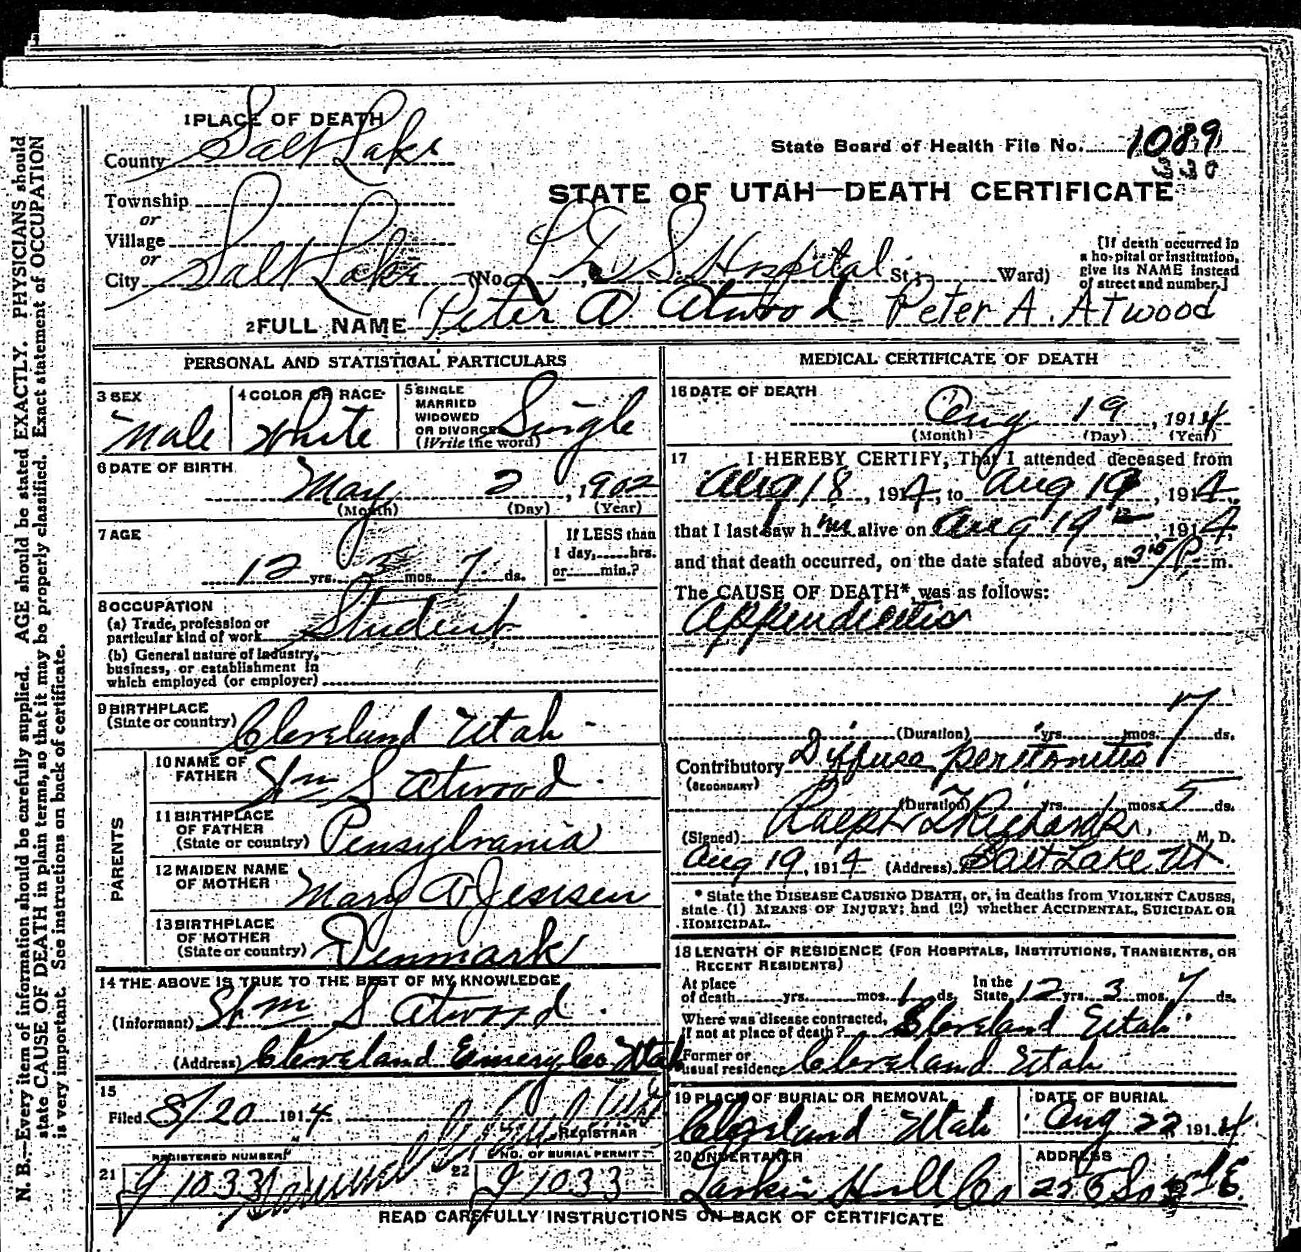 1 PLACE OF DEATH
County Salt Lake
State Board of Health File No. 1089
330
Township
or
Village
or
STATE OF UTAH—DEATH CERTIFICATE
City Salt Lake (No. L D S Hospital St; Ward)
[If death occurred in a hospital or institution, give its NAME instead of street and number.]
2 FULL NAME Peter A Atwood Peter A. Atwood
PERSONAL AND STATISTICAL PARTICULARS
3 SEX Male
4 COLOR OR RACE White
5 SINGLE MARRIED WIDOWED OR DIVORCED (Write the word) Single
6 DATE OF BIRTH
May 2, 1902
(Month) (Day) (Year)
7 AGE
12 yrs. 3 mos. 7 ds.
If LESS than 1 day, hrs. or min.?
8 OCCUPATION
(a) Trade, profession or particular kind of work Student
(b) General nature of industry, business, or establishment in which employed (or employer)
9 BIRTHPLACE
(State or country) Cleveland Utah
PARENTS
10 NAME OF FATHER Wm S Atwood
11 BIRTHPLACE OF FATHER (State or country) Pensylvania
12 MAIDEN NAME OF MOTHER Mary A Jensen
13 BIRTHPLACE OF MOTHER (State or country) Denmark
14 THE ABOVE IS TRUE TO THE BEST OF MY KNOWLEDGE
(Informant) Wm S Atwood
(Address) Cleveland Emery Co Utah
15
Filed 8/20 1914
REGISTRAR
REGISTERED NUMBER
21 J 1033
NO. OF BURIAL PERMIT
22 J 1033
MEDICAL CERTIFICATE OF DEATH
16 DATE OF DEATH
Aug 19, 1914
(Month) (Day) (Year)
17 I HEREBY CERTIFY, That I attended deceased from
Aug 18, 1914, to Aug 19, 1914,
that I last saw him alive on Aug 19, 1914,
and that death occurred, on the date stated above, at P. m.
The CAUSE OF DEATH*, was as follows:
Appendicitis
(Duration) yrs. mos. 7 ds.
Contributory Diffuse peritonitis
(SECONDARY)
(Duration) yrs. mos. 5 ds.
(Signed) Ralph T Richards, M. D.
Aug 19, 1914 (Address) Salt Lake Ut
* State the DISEASE CAUSING DEATH, or, in deaths from VIOLENT CAUSES,
state (1) MEANS OF INJURY; and (2) whether ACCIDENTAL, SUICIDAL OR
HOMICIDAL.
18 LENGTH OF RESIDENCE (FOR HOSPITALS, INSTITUTIONS, TRANSIENTS, OR
RECENT RESIDENTS)
At place of death yrs. mos. 1 ds. In the State 12 yrs. 3 mos. 7 ds.
Where was disease contracted, if not at place of death? Cleveland Utah
Former or usual residence Cleveland Utah
19 PLACE OF BURIAL OR REMOVAL
Cleveland Utah
DATE OF BURIAL
Aug 22 1914
20 UNDERTAKER
Larkin Hull Co
ADDRESS
READ CAREFULLY INSTRUCTIONS ON BACK OF CERTIFICATE
N. B.—Every item of information should be carefully supplied. AGE should be stated EXACTLY. PHYSICIANS should
state CAUSE OF DEATH in plain terms, so that it may be properly classified. Exact statement of OCCUPATION
is very important. See instructions on back of certificate.